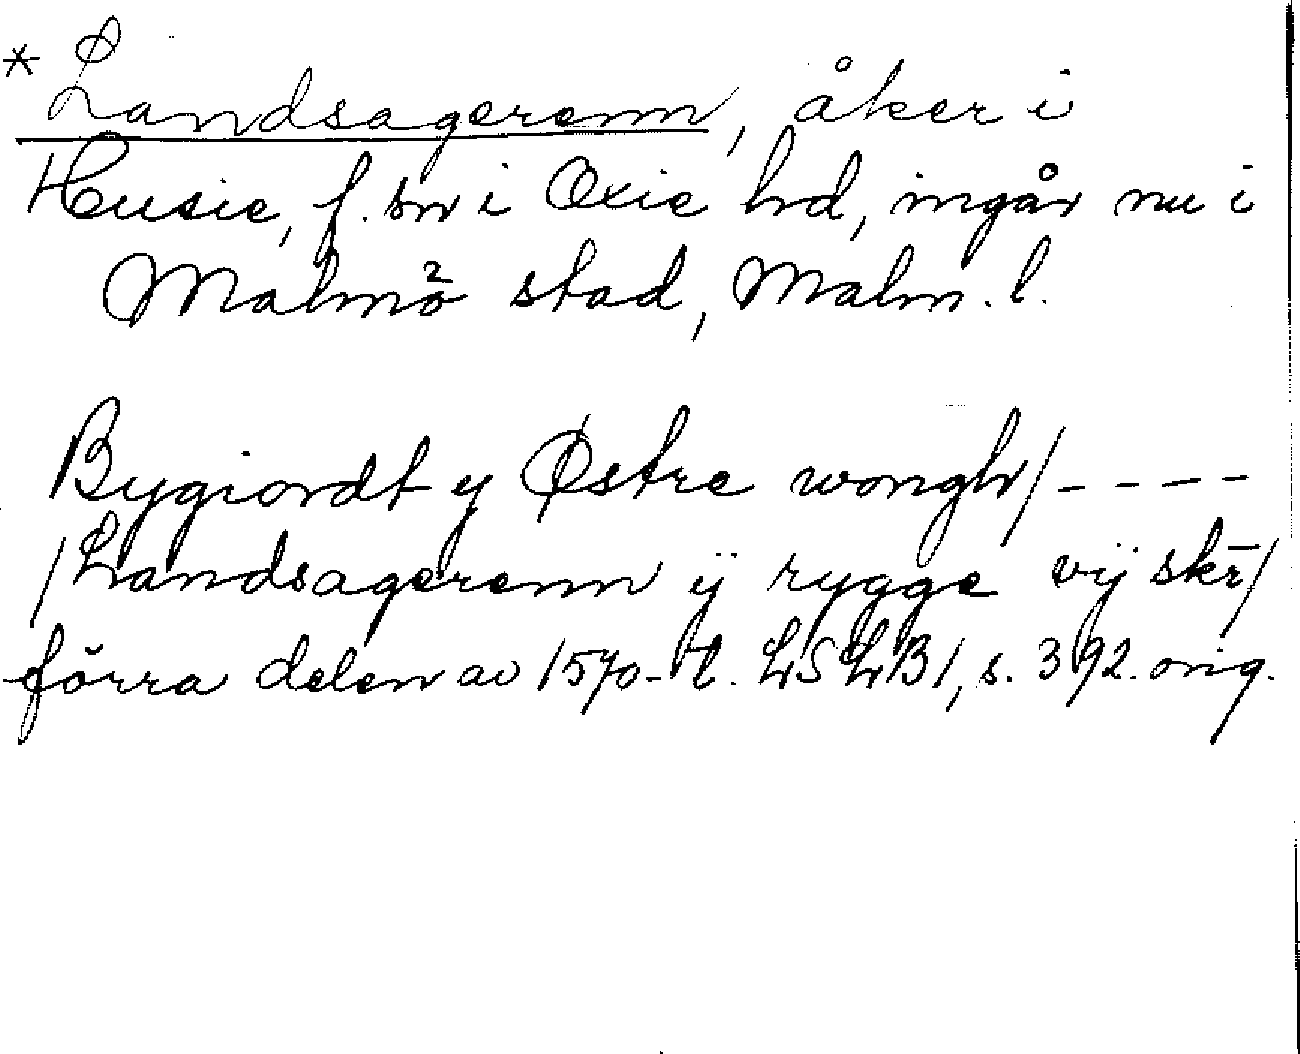 * Landsagerenn, åker i
Husie, f. sn i Oxie hd, ingår nu i
Malmö stad, Malm. l.
Bygiordt y Østre wongh/ - - - -
/Landsagerenn ÿ rygge vij skr̄/
förra delen av 1570-t. LSLB1, s. 392. orig.